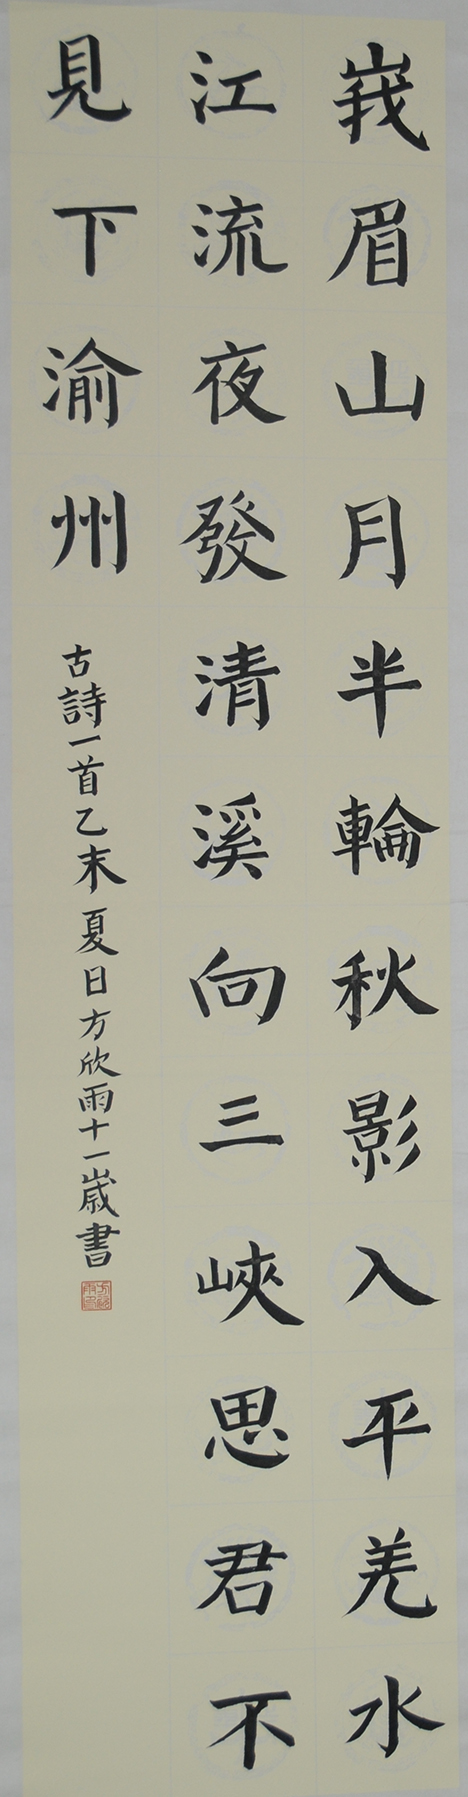 峩眉山月半輪秋影入平羌水
江流夜發清溪向三峽思君不
見下渝州
古詩一首乙末夏日方欣雨十一歲書